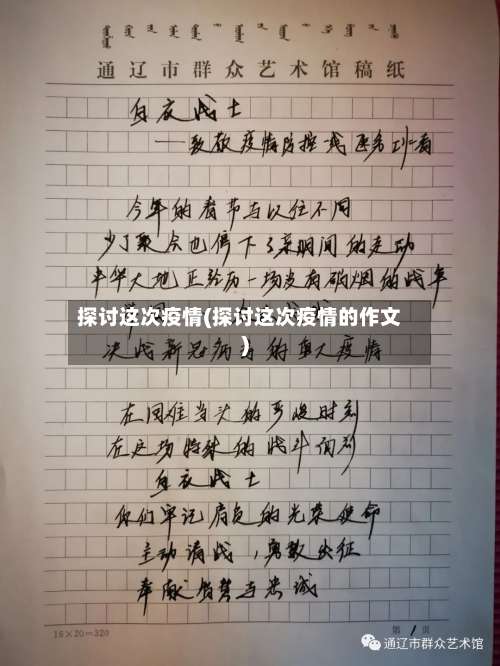 通辽市群众艺术馆稿纸
白衣战士
——致敬疫情防控战
今年的春节与以往不同
少了聚会也停下了亲朋间的走动
华大地正经历一场没有硝烟的战争
探讨这次疫情(探讨这次疫情的作文
)
决战新冠病毒的重大疫情
在困难当头的严峻时刻
在这场特殊的战斗
白衣战士
你们牢记肩负的光荣使命
主动请战,勇敢出征
奉献智慧与忠诚
16×20=320
第1页
通辽市群众艺术馆